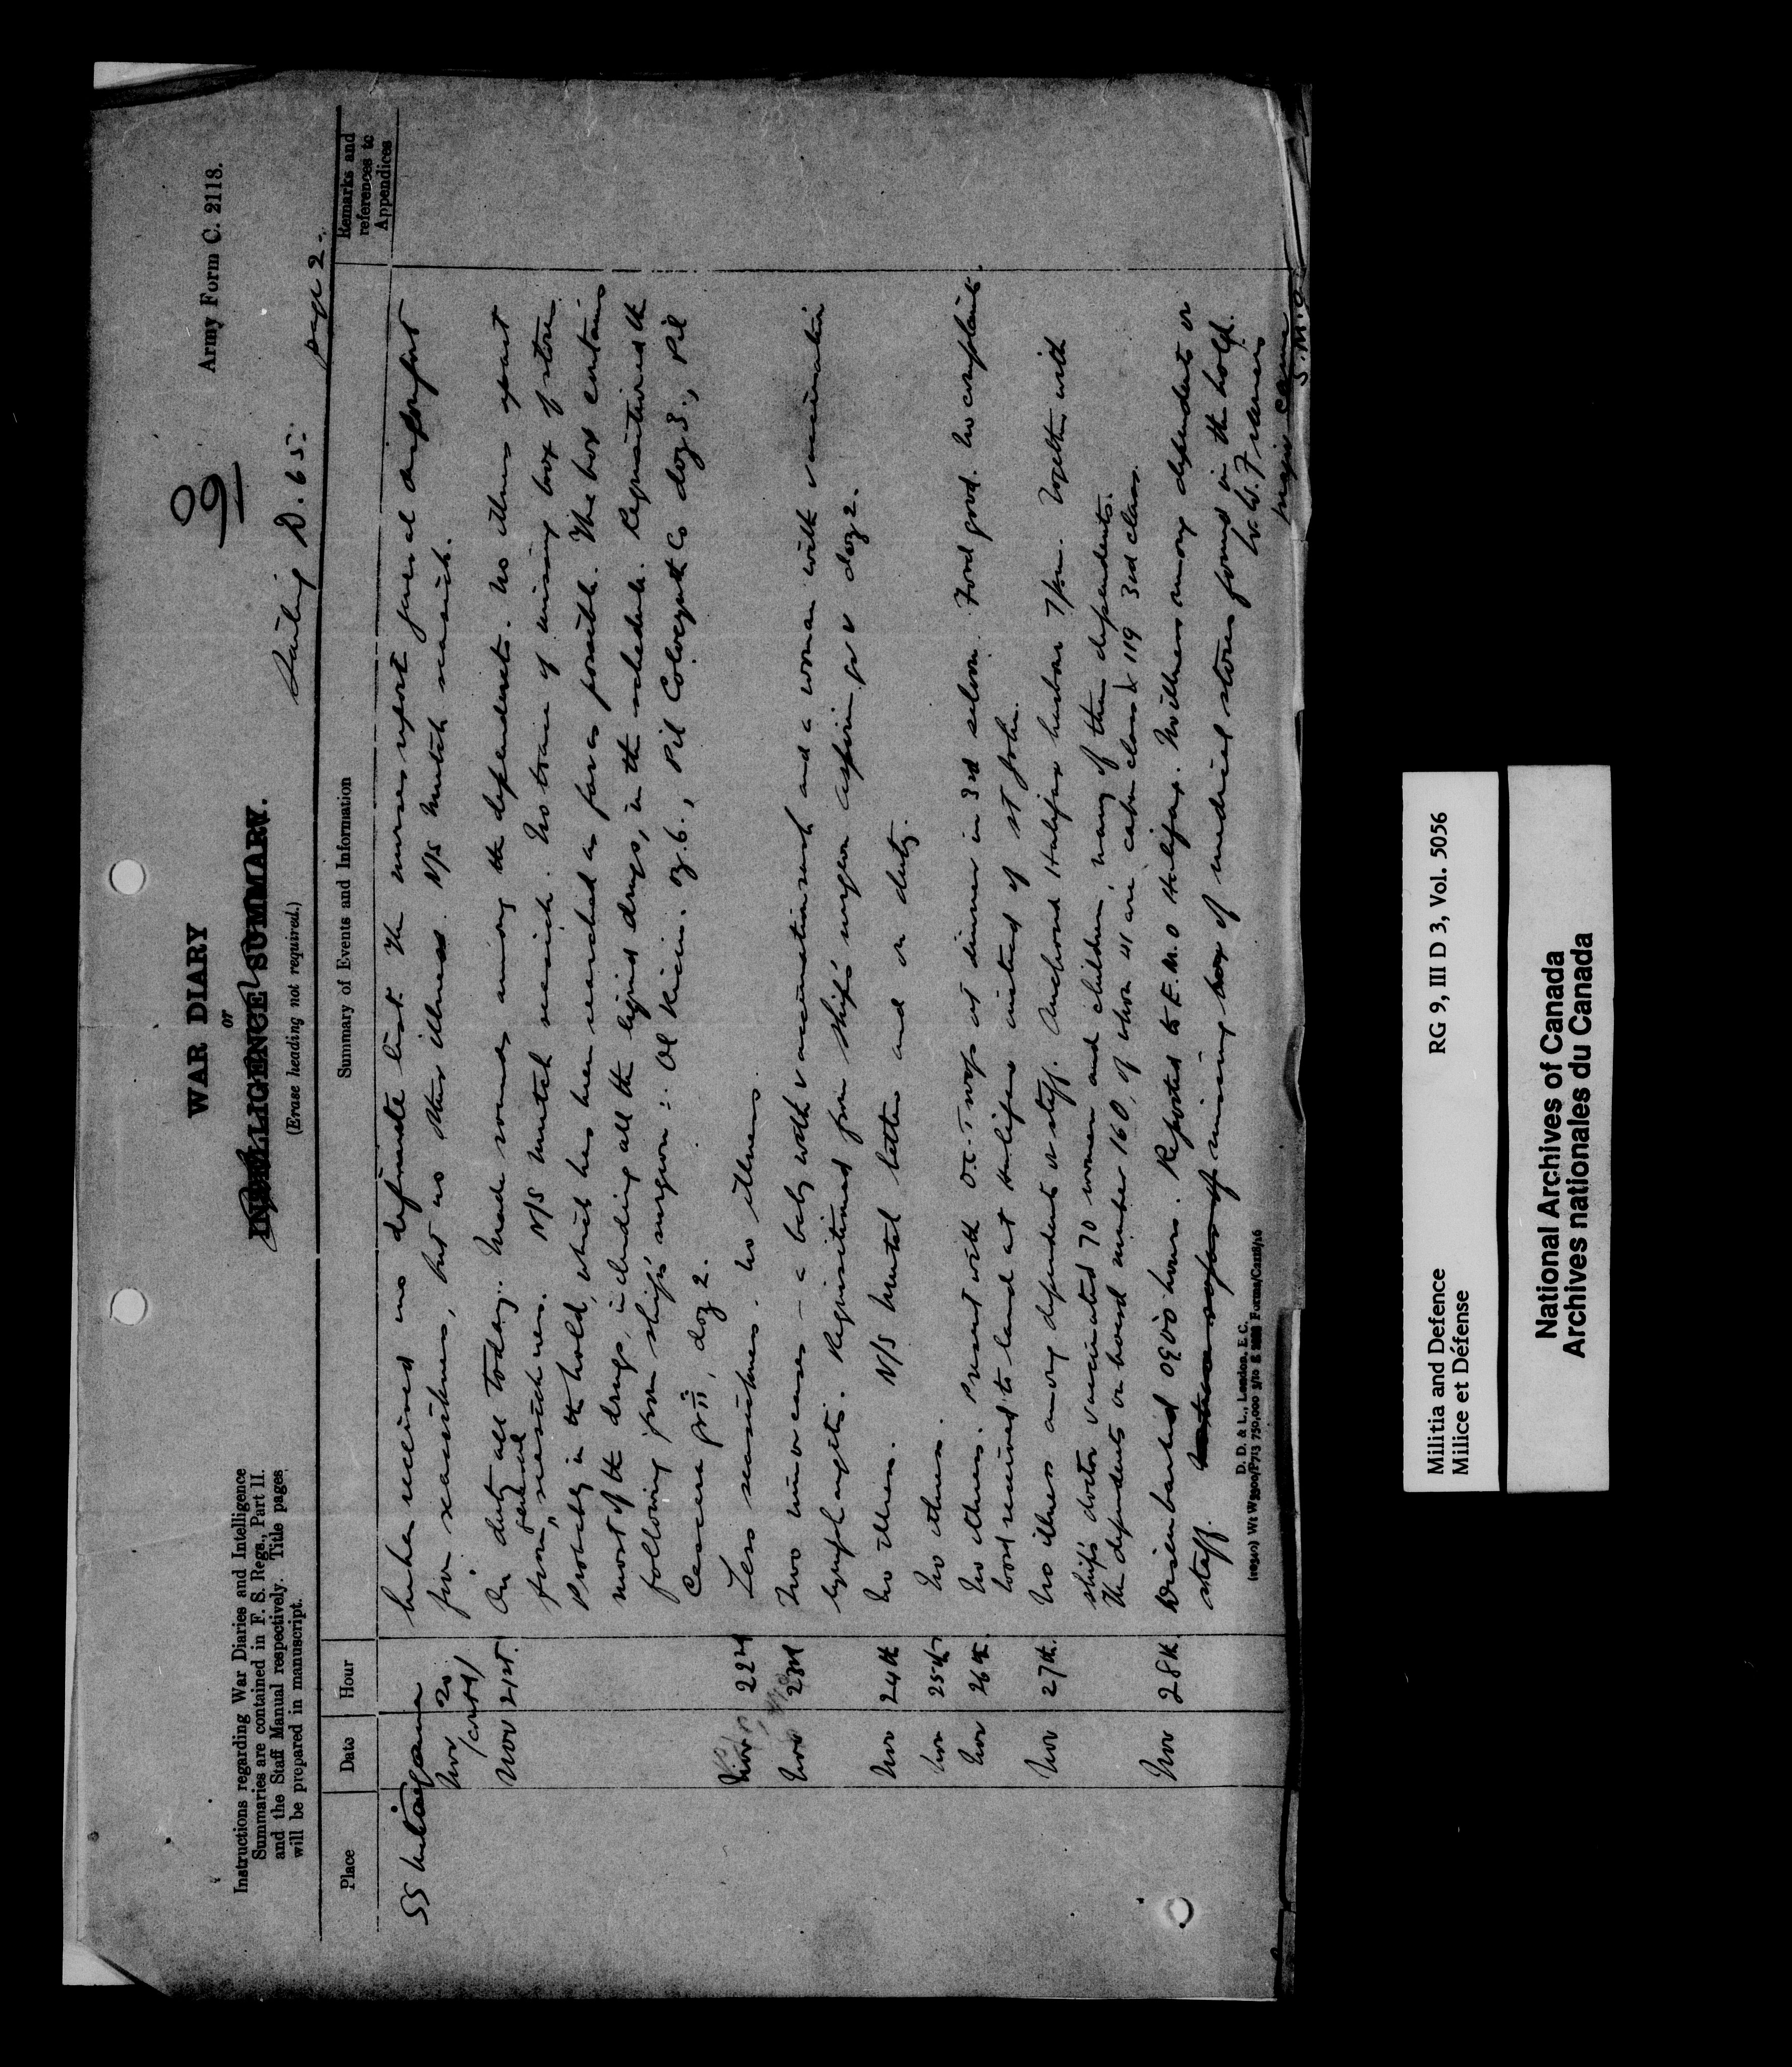 Army Form C. 2118.
WAR DIARY
or
INTELLIGENCE SUMMARY.
(Erase heading not required.)
Instructions regarding War Diaries and Intelligence
Summaries are contained in F. S. Regs., Part II.
and the Staff Manual respectively. Title pages
will be prepared in manuscript.
Sailing D. 65.
page 2.
Place
Date
Hour
Summary of Events and Information
Remarks and
references to
Appendices
SS Metagama
Nov 20
(contd)
been received no definite list. The nurses report general discomfort
from seasickness, but no other illness. N/S Mutch seasick.
Nov 21st.
On duty all today. Made rounds among the dependents. No illness apart
from general seasickness. N/S Mutch seasick. No trace of missing box of stores.
Probably in the hold, which has been searched as far as possible. The box contains
most of the drugs, including all the liquid drugs, in the schedule. Requisitioned the
following from ship's surgeon :. Ol Ricin. oz. 6., Pil Colocynth Co doz 3., Pil
Cascara gr ii, doz 2.
Nov 22nd
Less seasickness. No illness.
Nov 23rd
Two minor cases - a baby with vaccination rash and a woman with vaccination
lymphangitis. Requisitioned from ship's surgeon aspirin gr v doz 2.
Nov 24th
No illness. N/S Mutch better and on duty.
Nov 25th
No illness.
Nov 26th.
No illness. Present with O.C. Troops at dinner in 3rd saloon. Food good. No complaints.
Word received to land at Halifax instead of St John.
Nov 27th.
No illness among dependents or staff. Anchored Halifax harbour 7pm. Together with
ship's doctor vaccinated 70 women and children, many of them dependents.
The dependents on board number 160, of whom 41 are cabin class & 119 3rd class.
Nov 28th.
Disembarked 0900 hours. Reported to E.M.O Halifax. No illness among dependents or
staff. missing box of medical stores found in the hold.
Major CAMC
S.M.O.
D. D. & L., London, E.C.
Militia and Defence
Milice et Défense
RG 9, III D 3, Vol. 5056
National Archives of Canada
Archives nationales du Canada